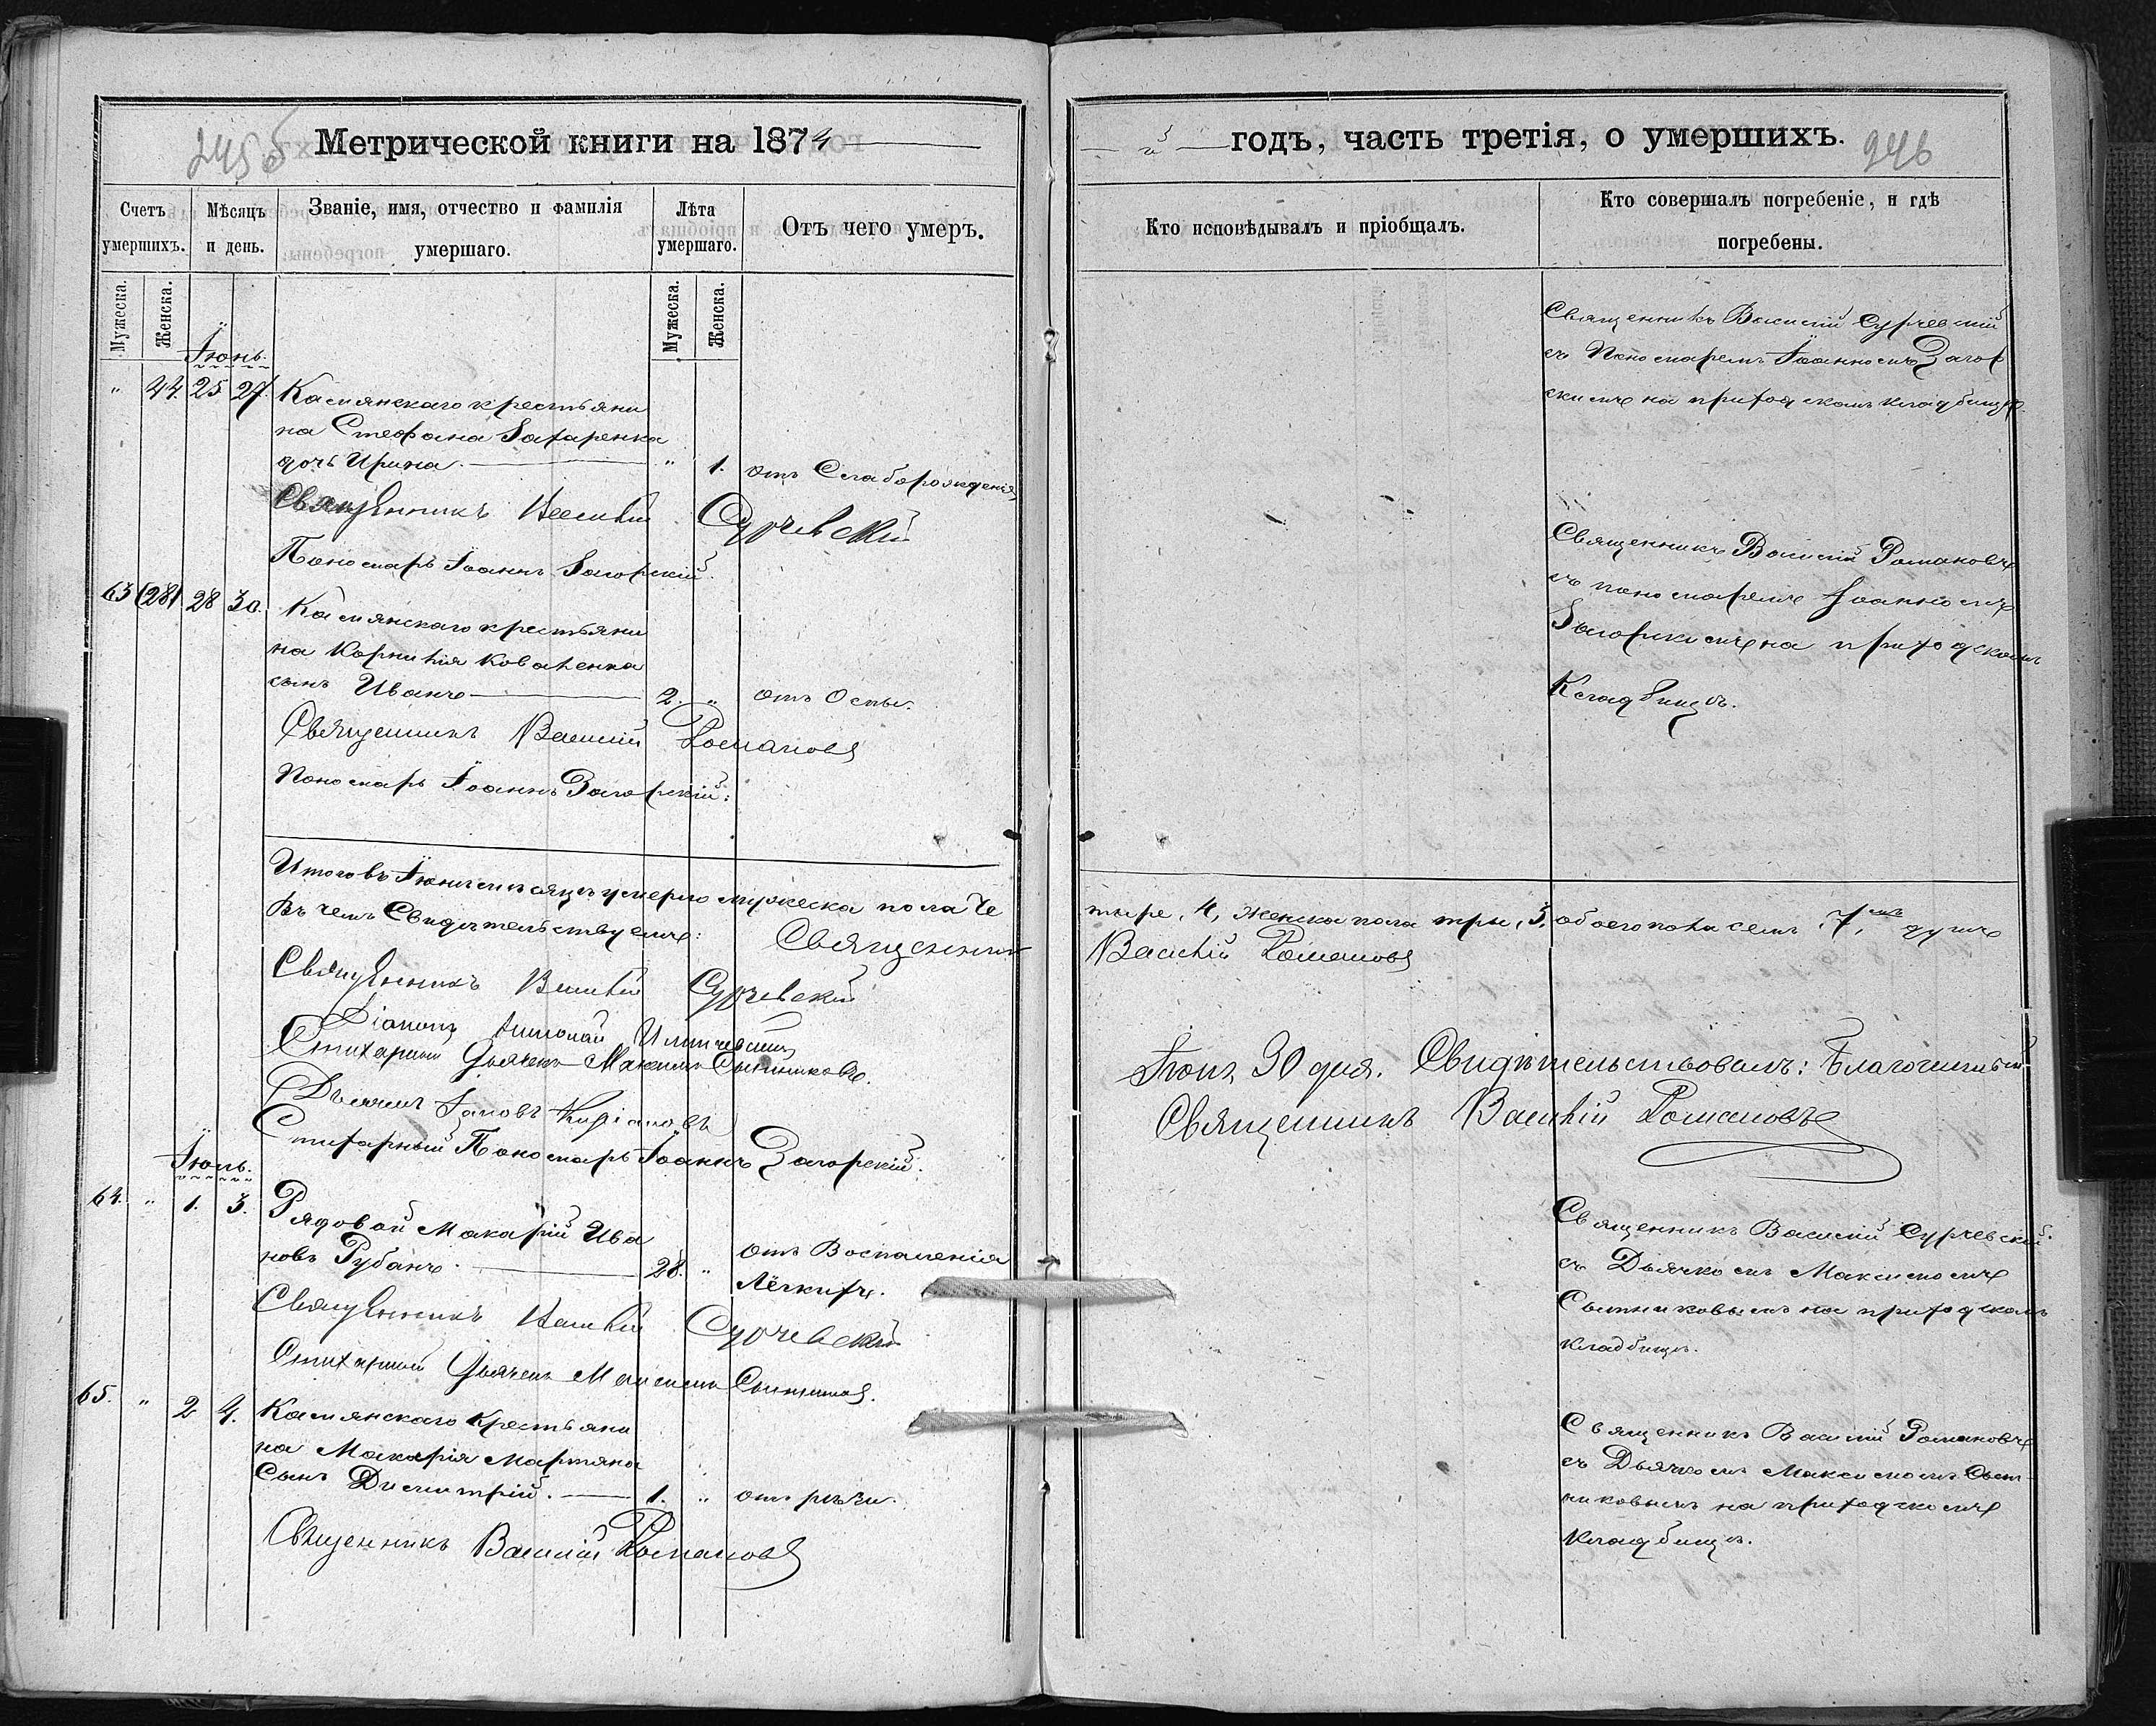 Метрической книги на 1874
Счетъ умершихъ.
Мѣсяцъ и день.
Званіе, имя, отчество и фамилія умершаго.
Лѣта умершаго.
Отъ чего умеръ.
Мужеска.
Женска.
Мужеска.
Женска.
Іюнь.
" 44. 25 27. Камянскаго крестьяни
на Стефана Захаренка
дочь Ирина " 1. отъ Слаборожденія
Священникъ Василій Сурчевскій
Пономарь Іоаннъ Загорскій.
63 28 30. Камянскаго крестьяни
на Корнилія Коваленка
сынъ Иванъ 2. " отъ Оспы.
Священникъ Василій Романовъ
Пономарь Іоаннъ Загорскій:
Итого въ Іюнѣ мѣсяцѣ умерло мужеска пола че
въ чемъ Свидѣтельствуемъ: Священникъ
Священникъ Василій Сурчевскій
Діаконъ Николай
Стихарный Дьячекъ Максимъ Сытниковъ.
Дьячекъ Іаковъ
Стихарный Пономарь Іоаннъ Загорскій.
Іюль.
64. " 1. 3. Рядовой Макарій Ива
новъ Рубанъ. 28. " отъ Воспаленія
Лёгкихъ.
Священникъ Василій Сурчевскій
Стихарный Дьячекъ Максимъ Сытниковъ.
65. " 2 4. Камянскаго Крестьяни
на Макарія Мартяна
Сынъ Димитрій. 1. " отъ рѣзи.
Священникъ Василій Романовъ
годъ, часть третія, о умершихъ.
246
Кто исповѣдывалъ и пріобщалъ.
Кто совершалъ погребеніе, и гдѣ погребены.
Священникъ Василій Сурчевскій
съ Пономаремъ Іоанномъ Загор
скимъ на приходскомъ кладбищѣ.
Священникъ Василій Романовъ
съ пономаремъ Іоанномъ
Загорскимъ на приходскомъ
Кладбищѣ.
тыре, 4, женска пола три, 3, обоего пола семь 7, душъ
Василій Романовъ
Іюня 30 дня. Свидѣтельствовалъ: Благочинный
Священникъ Василій Романовъ
Священникъ Василій Сурчевскій
съ Дьячкомъ Максимомъ
Сытниковымъ на приходскомъ
кладбищѣ.
Священникъ Василій Романовъ
съ Дьячкомъ Максимомъ Сыт
никовымъ на приходскомъ
кладбищѣ.